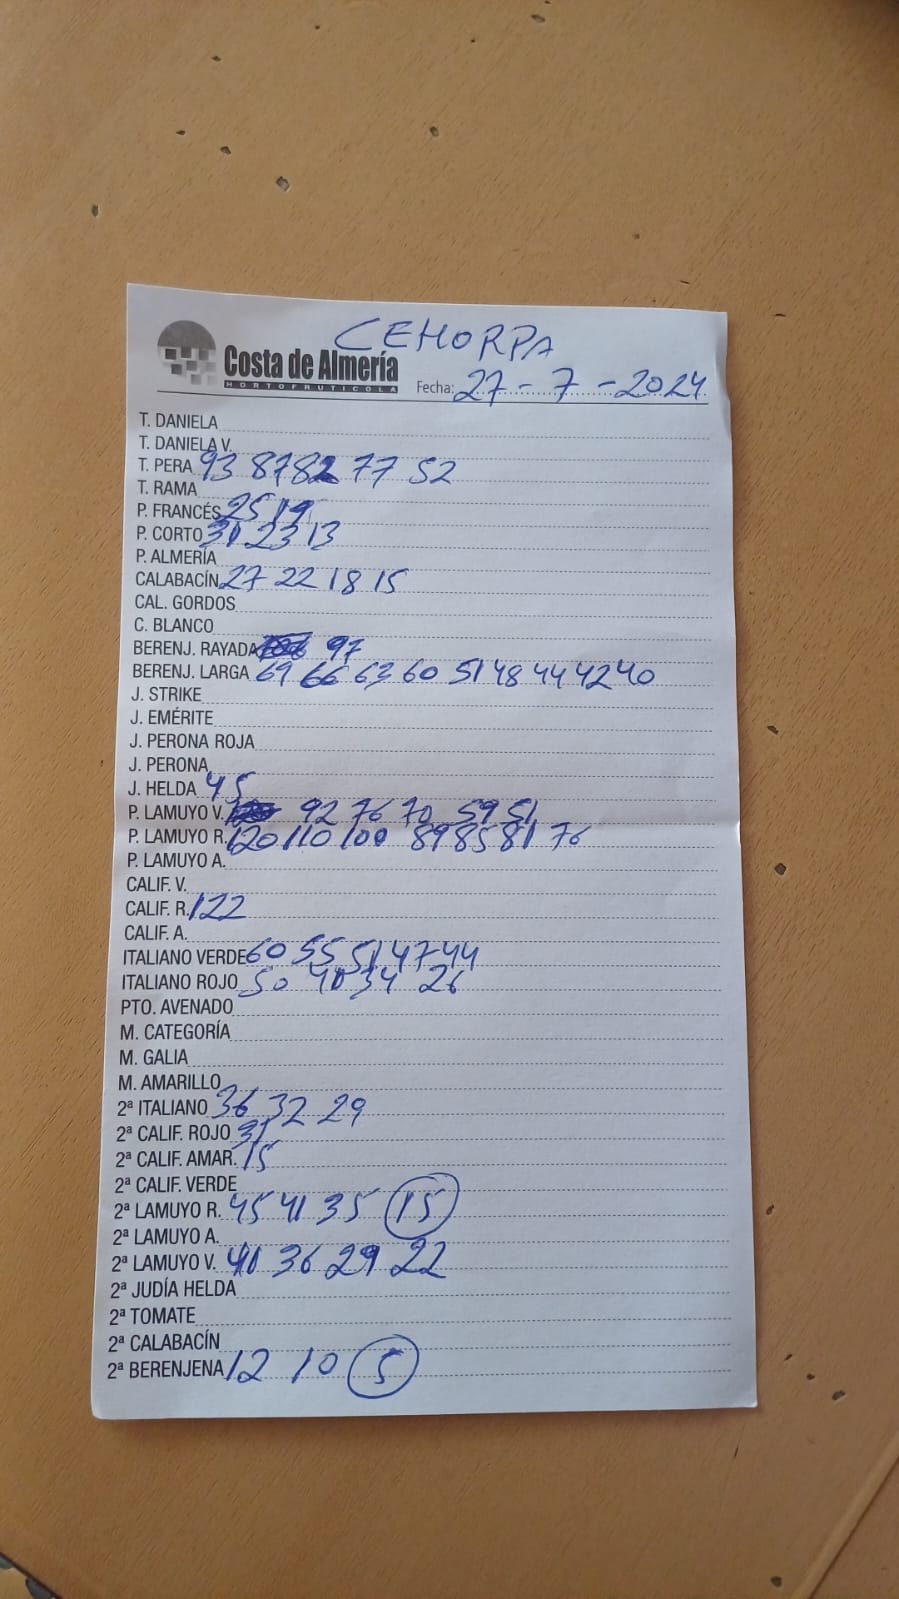 CEHORPA
Costa de Almería
HORTOFRUTICOLA
Fecha: 27-7-2024
T. DANIELA
T. DANIELA V.
T. PERA 93 87 82 77 52
T. RAMA
P. FRANCÉS 25 19
P. CORTO 31 23 13
P. ALMERÍA
CALABACÍN 27 22 18 15
CAL. GORDOS
C. BLANCO
BERENJ. RAYADA 97
BERENJ. LARGA 69 66 63 60 51 48 44 42 40
J. STRIKE
J. EMÉRITE
J. PERONA ROJA
J. PERONA
J. HELDA 45
P. LAMUYO V. 92 76 70 59 51
P. LAMUYO R. 120 110 100 89 85 81 76
P. LAMUYO A.
CALIF. V.
CALIF. R. 122
CALIF. A.
ITALIANO VERDE 60 55 51 47 44
ITALIANO ROJO 50 34 26
PTO. AVENADO
M. CATEGORÍA
M. GALIA
M. AMARILLO
2ª ITALIANO 36 32 29
2ª CALIF. ROJO 31
2ª CALIF. AMAR. 15
2ª CALIF. VERDE
2ª LAMUYO R. 45 41 35 15
2ª LAMUYO A.
2ª LAMUYO V. 36 29 22
2ª JUDÍA HELDA
2ª TOMATE
2ª CALABACÍN
2ª BERENJENA 12 10 5